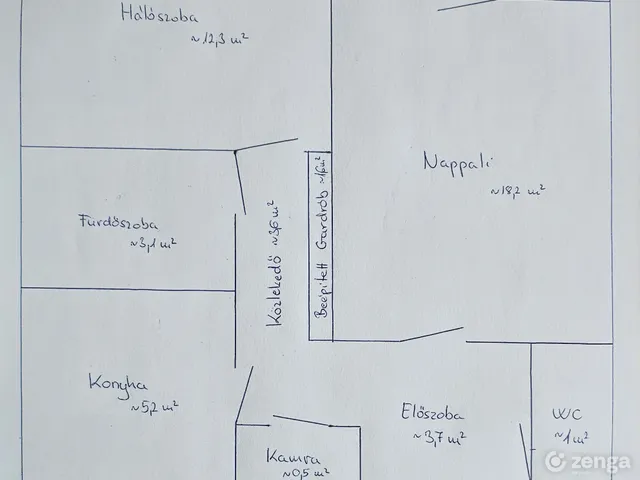 Hálószoba
~12,3 m²
Nappali
~18,2 m²
Fürdőszoba
~3,1 m²
Közlekedő ~3,6 m²
Beépített Gardrób ~1,6 m²
Konyha
~5,2 m²
Előszoba
~3,7 m²
WC
~1 m²
Kamra
~0,5 m²
zenga